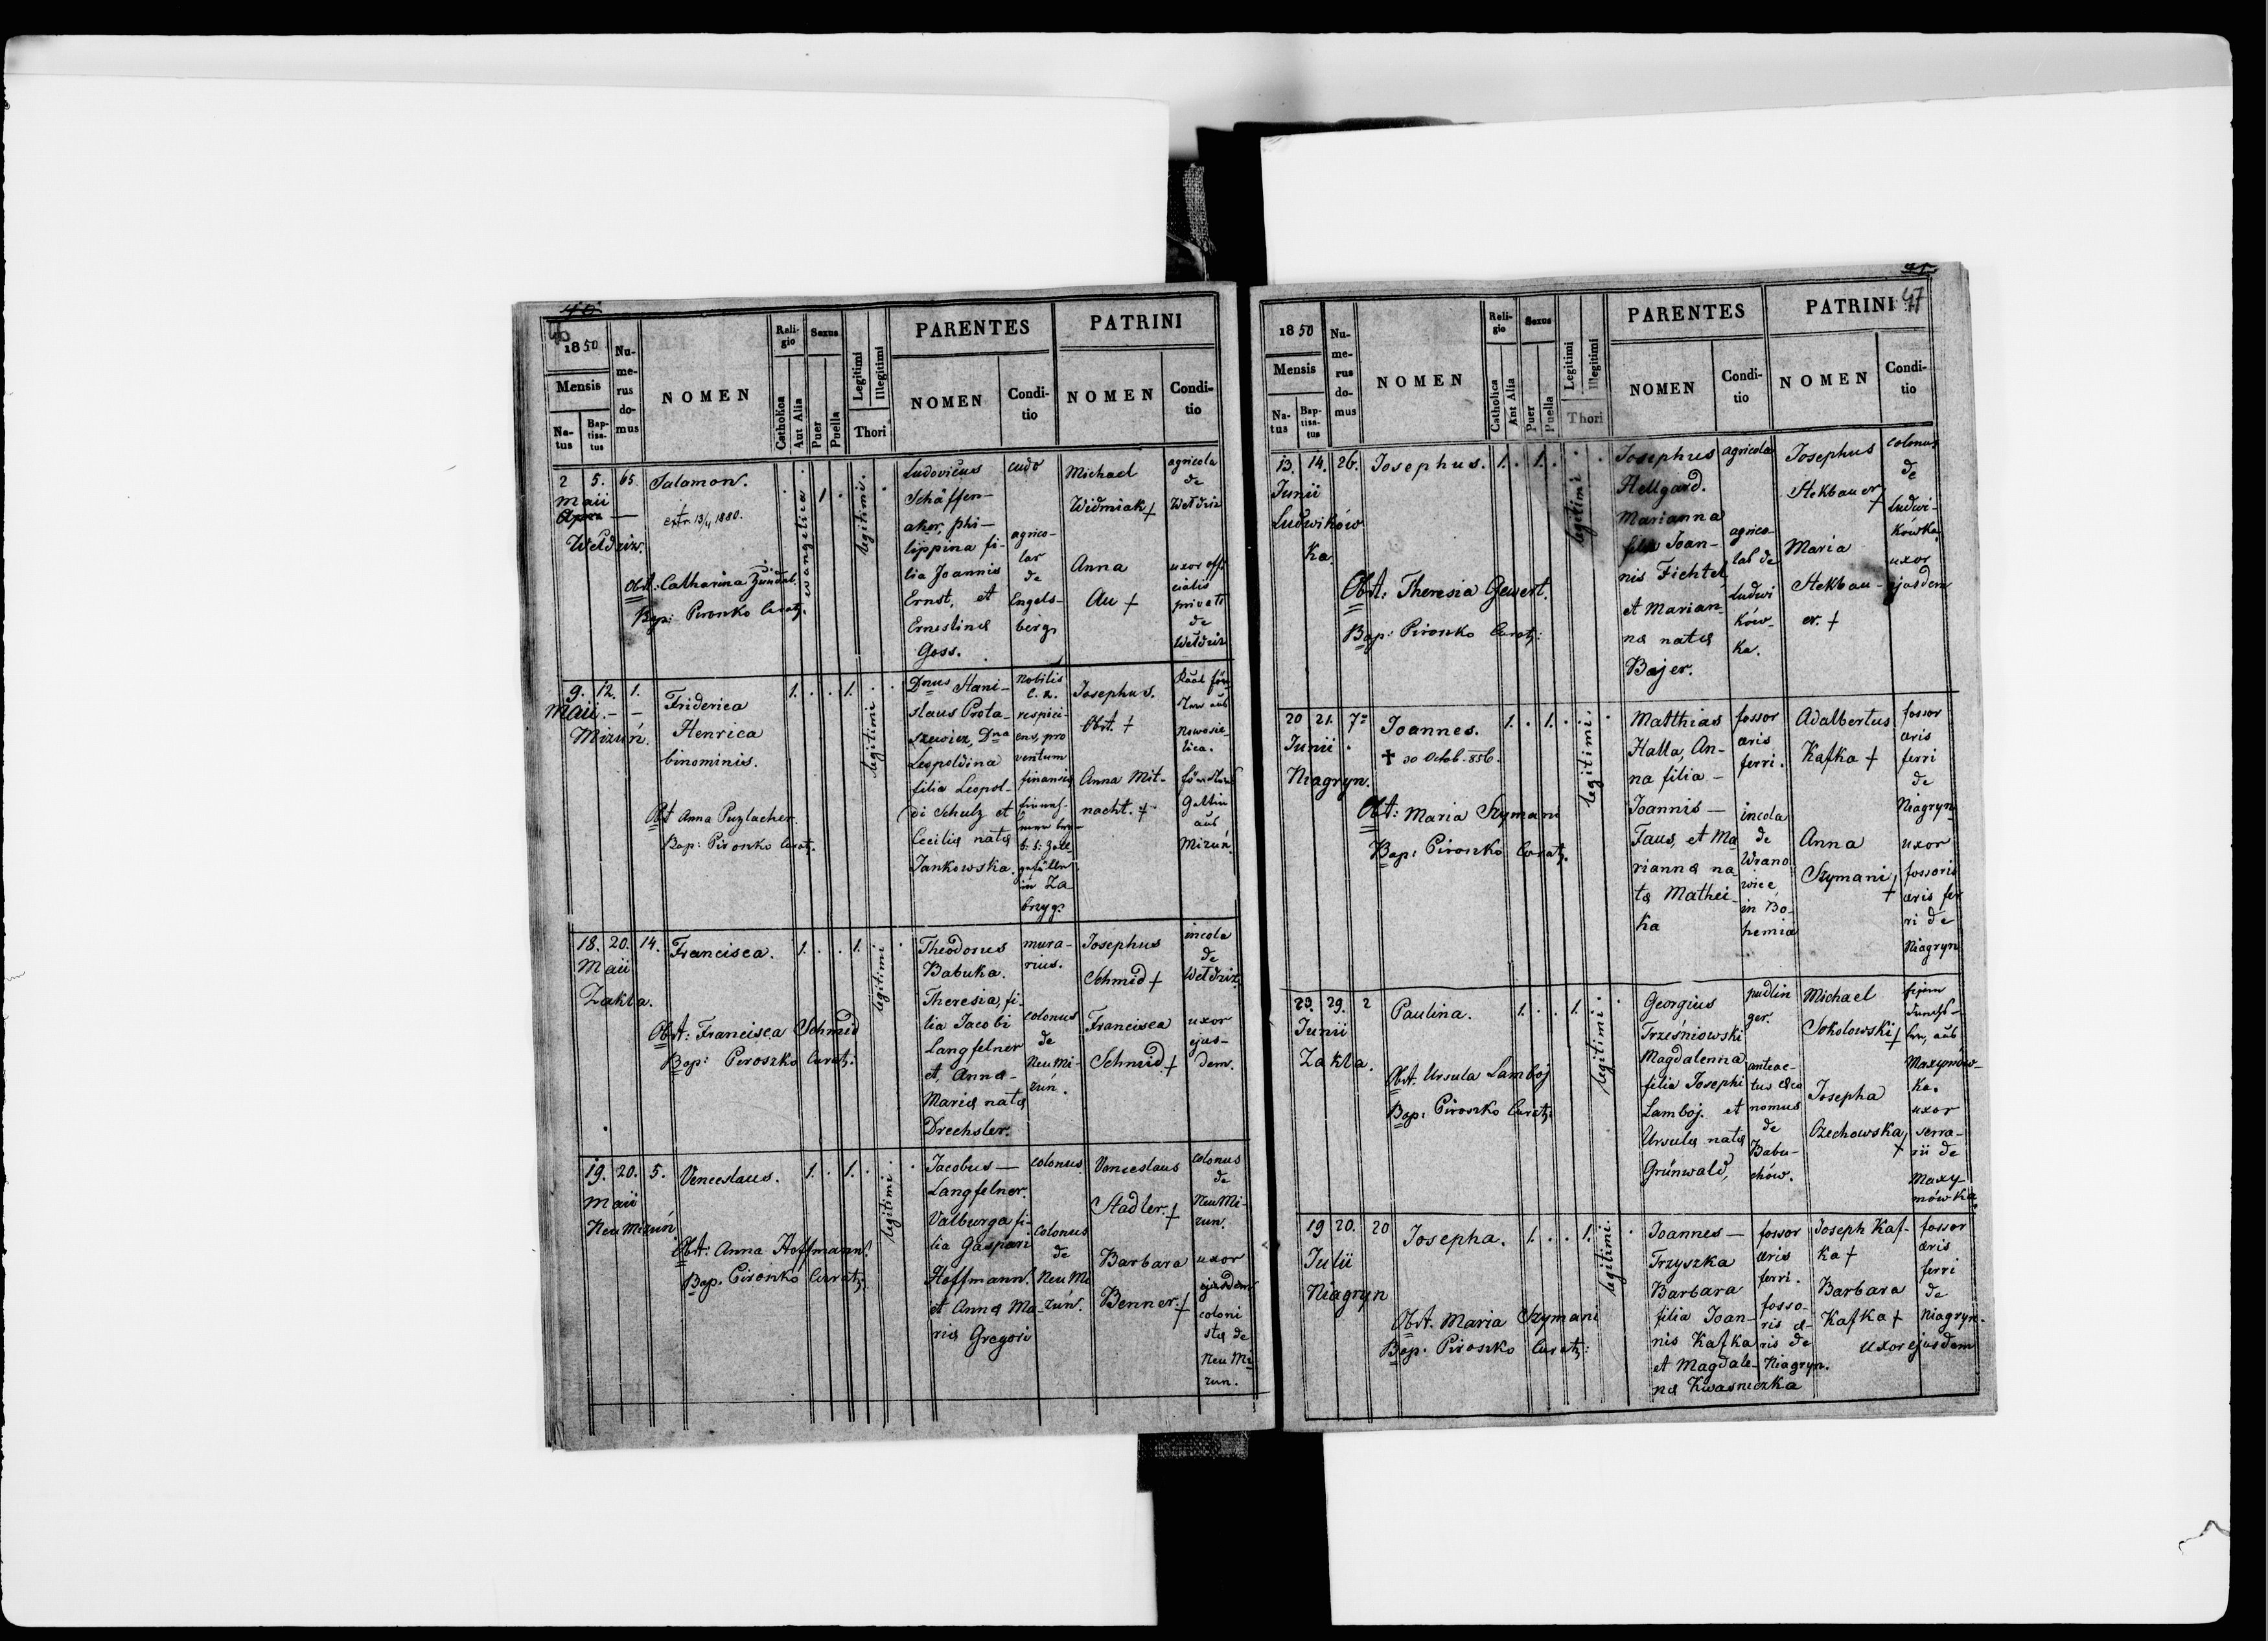 46
1850
Mensis
Na-
tus
Bap-
tisa-
tus
Nu-
me-
rus
do-
mus
NOMEN
Reli-
gio
Catholica
Aut Alia
Sexus
Puer
Puella
Legitimi
Illegitimi
Thori
PARENTES
NOMEN
Condi-
tio
PATRINI
NOMEN
Condi-
tio
2 5. 65.
Maii
Wełdziz.
Salamon.
extr. 13/4 1880.
Obst: Catharina
Bap: Piroszko Curat:
ewangelica
1
legitimi
Ludovicus
Schäffen-
aker, Phi-
lippina fi-
lia Joannis
Ernst, et
Ernestina
Goss.
cudo
agrico-
lar
de
Engels-
berg
Michael
Widmiak +
Anna
Au +
agricola
de
Wełdziz
uxor offi
cialis
privati
de
Wełdziz
9. 12. 1.
Maii. - -
Mizuń.
Friderica
Henrica
binominis.
Obst Anna Puzlacher.
Bap: Piroszko Curat:
1. . . 1.
legitimi
Dnus Stani-
slaus Prota-
szewicz, Dna
Leopoldina
filia Leopol-
di Schulz et
Cecilia nata
Jankowska.
nobilis
c. r.
respici-
ens, pro
ventum
finansis
in Za
brzyg.
Josephus.
Obst. +
Anna Mit-
nacht. +
aus
Nowosie
lica.
Gattin
aus
Mizuń.
18. 20. 14.
Maii
Zakla.
Francisca.
Obst: Francisca Schmid
Bap: Piroszko Curat:
1. . . 1.
legitimi
Theodorus
Babuka.
Theresia, fi-
lia Jacobi
Langfelner
et, Anna-
Maria nata
Drechsler.
mura-
rius.
colonus
de
Neu Mi-
zuń.
Josephus
Schmid +
Francisca
Schmid +
incola
de
Wełdziz.
uxor
ejus-
dem.
19. 20. 5.
Maii
Neu Mizuń
Venceslaus.
Obst: Anna Hoffmann.
Bap. Piroszko Curat:
1. . 1. .
legitimi.
Jacobus -
Langfelner.
Valburga fi-
lia Gaspari
Hoffmann.
et Anna Ma-
ria Gregori
colonus.
colonus
de
Neu Mi
zuń.
Venceslaus
Stadler. +
Barbara
Benner. +
colonus
de
Neu Mi-
zun.
uxor
ejusdem
coloni
sta de
Neu Mi
zun.
47
1850
Mensis
Na-
tus
Bap-
tisa-
tus
Nu-
me-
rus
do-
mus
NOMEN
Reli-
gio
Catholica
Aut Alia
Sexus
Puer
Puella
Legitimi
Illegitimi
Thori
PARENTES
NOMEN
Condi-
tio
PATRINI
NOMEN
Condi-
tio
13. 14. 26.
Junii
Ludwików
ka
Josephus.
Obst: Theresia Gewert.
Bap: Piroszko Curat:
1. . 1. .
legitimi
Josephus
Hellgard.
Marianna
filia Joan-
nis Fichtel
et Marian-
na nata
Bajer.
agricola
agrico-
lae de
Ludwi
ków-
ka.
Josephus
Stekbauer +
Maria
Stekbau-
er. +
colonus
de
Ludwi-
kówka
uxor
ejusdem
20 21. 7
Junii .
Niagryn.
Joannes.
✝ 30 Octob. 856.
Obst: Maria Szymani
Bap: Piroszko Curat:
1. . 1. .
legitimi.
Matthias
Halla, An-
na filia -
Joannis -
Taus, et Ma
rianna na
ta Mathei-
ka
fossor
æris
ferri.
incola
de
Wrano
wice
in Bo-
hemia
Adalbertus
Kafka +
Anna
Szymani +
fossor
æris
ferri
de
Niagryn
uxor
fossoris
æris fer
ri de
Niagryn
29. 2
Junii
Zakla.
Paulina.
Obst. Ursula Lamboj
Bap: Piroszko Curat:
1. . . 1.
legitimi.
Georgius
Trześniowski
Magdalenna
filia Josephi
Lamboj. et
Ursula nata
Grünwald,
pudlin
ger.
anteac-
tus œco
nomus
de
Babu-
chów.
Michael
Sokolowski +
Josepha
Czechowska +
aus
Maxymów-
ka.
uxor
serra-
rii de
Maxy-
mówka
19 20. 20
Julii
Niagryn
Josepha.
Obst. Maria Szymani
Bap. Piroszko Curat:
1. . . 1.
legitimi.
Joannes -
Trzyszka
Barbara
filia Joan-
nis Kafka
et Magdale-
na Kwasniczka
fossor
æris
ferri.
fosso-
ris æ-
ris de
Niagryn.
Joseph Kaf-
ka +
Barbara
Kafka +
uxor ejusdem
fossor
æris
ferri
de
Niagryn.